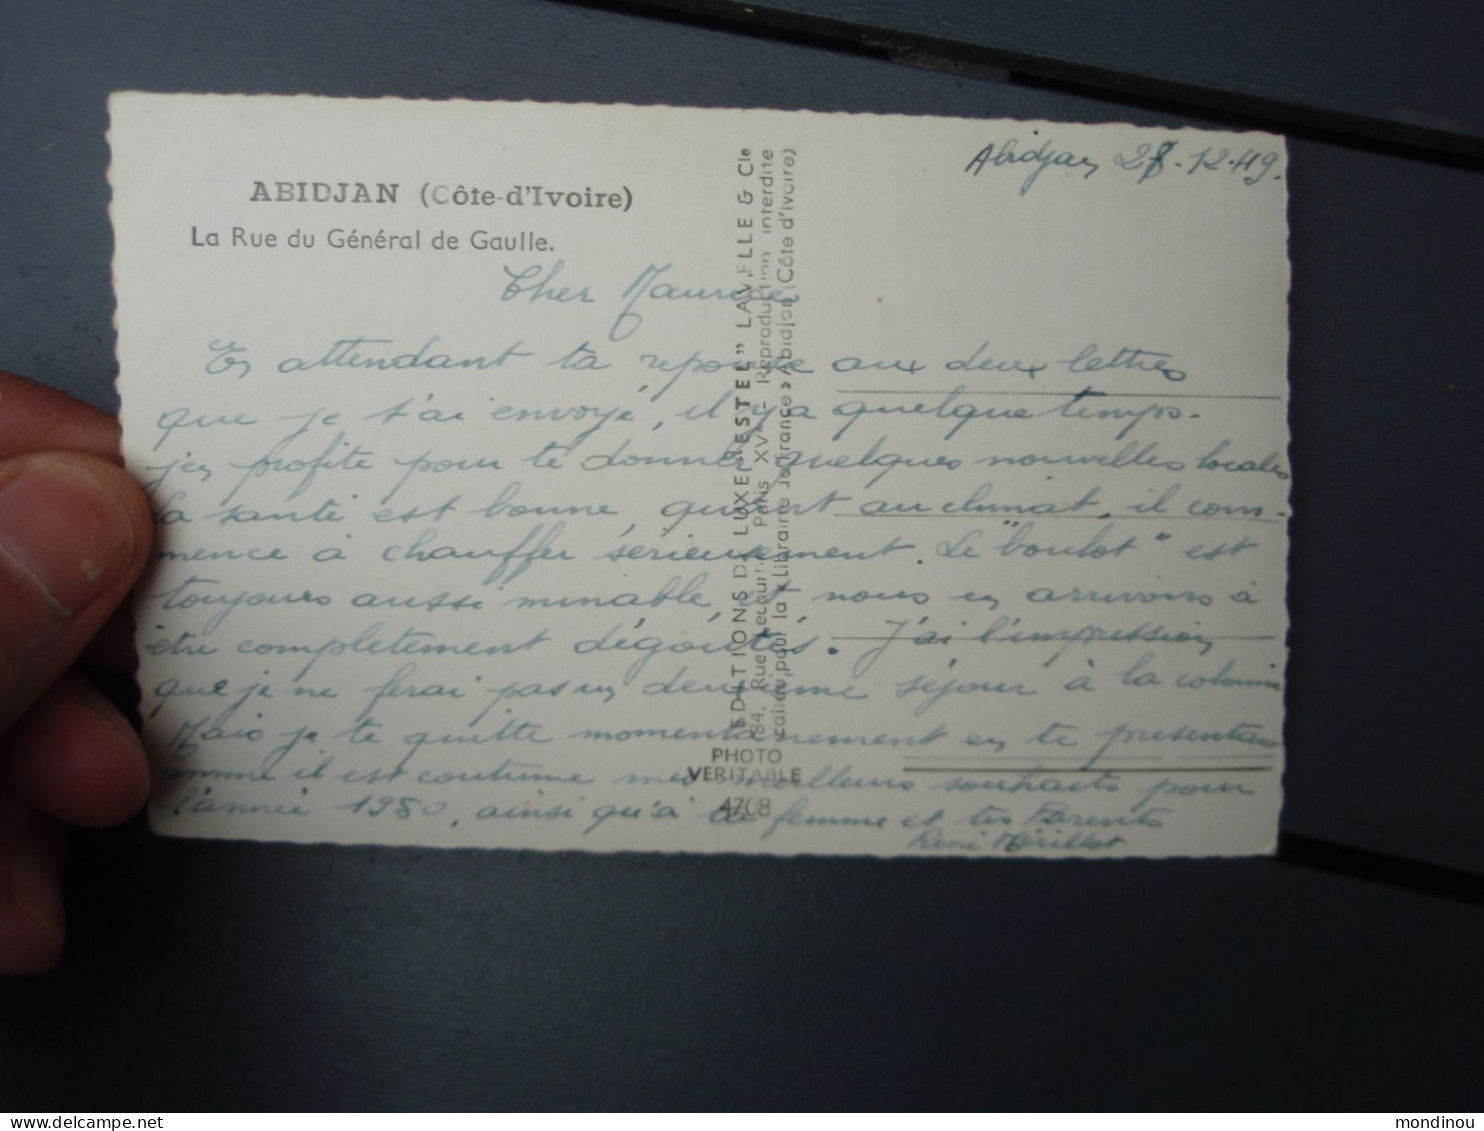 Abidjan 28-12-49.
ABIDJAN (Côte-d'Ivoire)
La Rue du Général de Gaulle.
Cher Maurice
En attendant ta reponse aux deux lettres
que je t'ai envoyé, il y a quelque temps.
j'en profite pour te donner quelques nouvelles locales
La santé est bonne, quant au climat, il com-
mence à chauffer sérieusement. Le "boulot" est
toujours aussi minable, et nous en arrivons à
être complètement dégoutés. J'ai l'impression
que je ne ferai pas un deuxième séjour à la colonie
Mais je te quitte momentanement en te presentant
comme il est coutume mes meilleurs souhaits pour
l'année 1950, ainsi qu'à ta femme et tes Parents
René Mérillot
"EDITIONS DE LUXE "ESTEL" LAVELLE & Cie
84, Rue Lecourbe Paris XV - Reproduction interdite
pour la « Librairie de France » Abidjan (Côte d'Ivoire)
PHOTO
VERITABLE
4708
mondinou